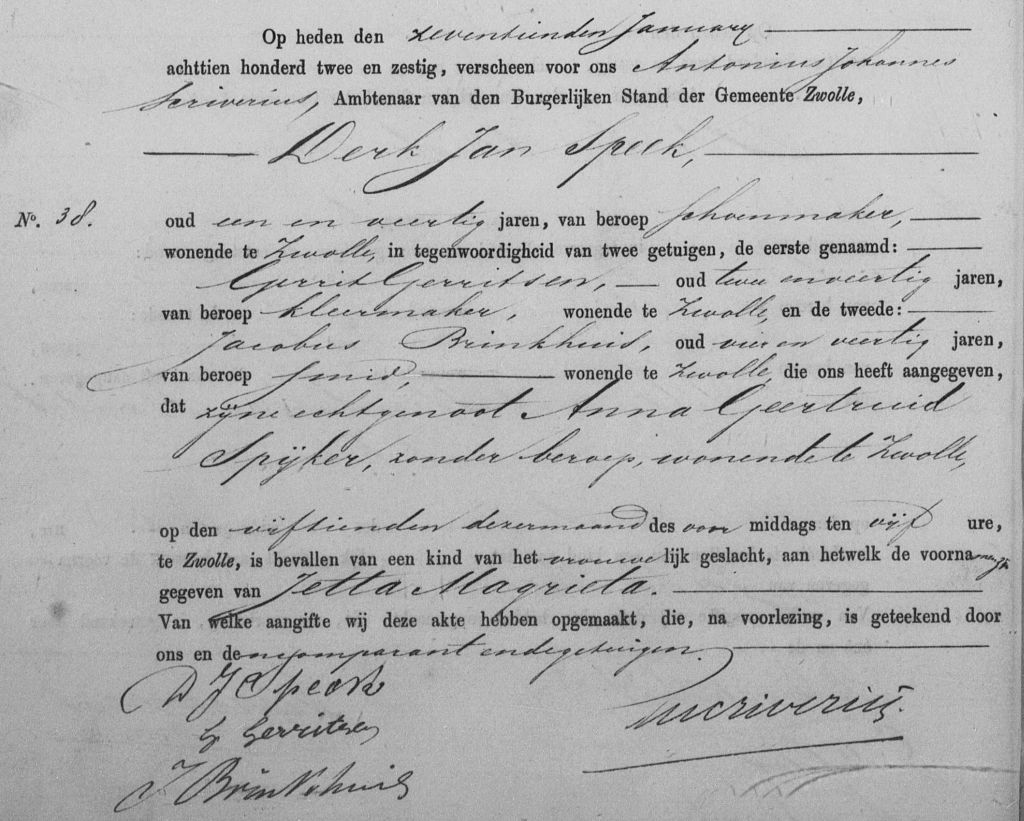 Op heden den zeventienden January
achttien honderd twee en zestig, verscheen voor ons Antonius Johannes
Scriverius, Ambtenaar van den Burgerlijken Stand der Gemeente Zwolle,
Derk Jan Speek,
No. 38. oud een en veertig jaren, van beroep schoenmaker,
wonende te Zwolle, in tegenwoordigheid van twee getuigen, de eerste genaamd:
Gerrit Gerritsen, oud twee en veertig jaren,
van beroep kleermaker, wonende te Zwolle, en de tweede:
Jacobus Brinkhuis, oud vier en veertig jaren,
van beroep smid, wonende te Zwolle, die ons heeft aangegeven,
dat zijne echtgenoot Anna Geertruid
Spijker, zonder beroep, wonende te Zwolle,
op den vijftienden dezer maand des voor middags ten vijf ure,
te Zwolle, is bevallen van een kind van het vrouwelijk geslacht, aan hetwelk de voornamen zijn
gegeven van Jetta Magrieta.
Van welke aangifte wij deze akte hebben opgemaakt, die, na voorlezing, is geteekend door
ons en den comparant en de getuigen.
D J Speek
G Gerritsen
J Brinkhuis
Scriverius.